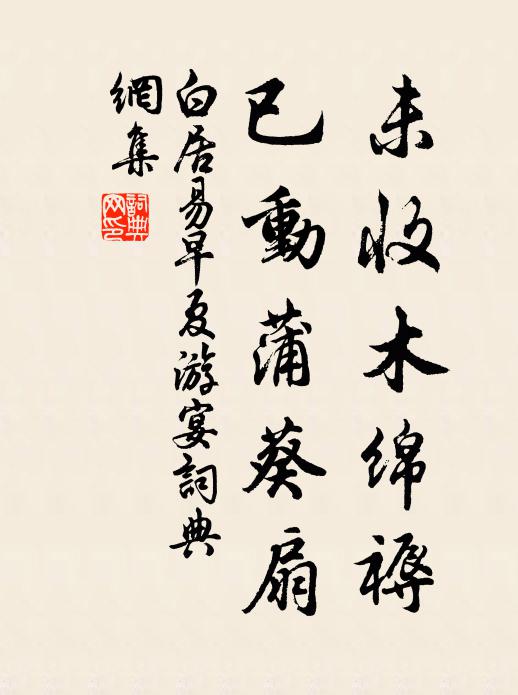 未收木绵褥
已動蒲葵扇
白居易早夏游宴詞典
網集
詞典
网印